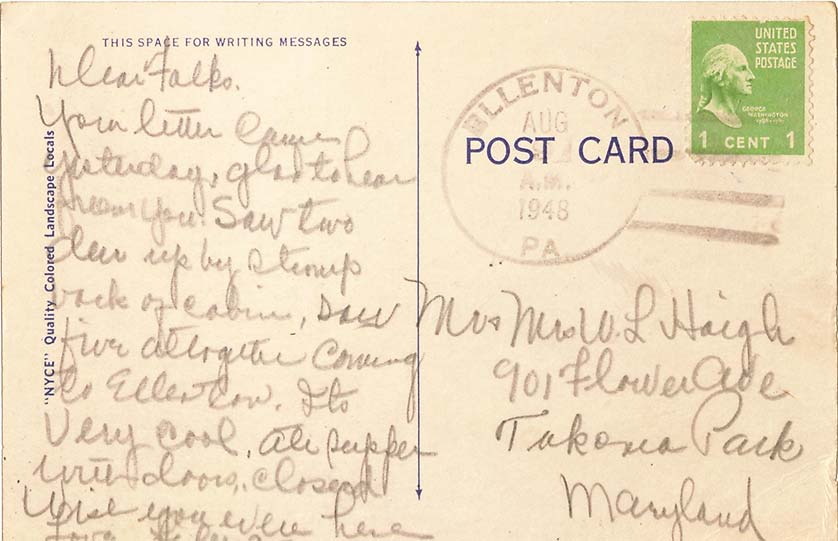 THIS SPACE FOR WRITING MESSAGES
Dear Folks.
Your letter came
yesterday, glad to hear
from you. Saw two
deer up by stump
back of cabin, saw
five altogether coming
to Ellenton. Its
very cool, ate supper
with doors, closed
Wish you were here
Love
"NYCE" Quality Colored Landscape Locals
UNITED
STATES
POSTAGE
GEORGE
WASHINGTON
1 CENT 1
ELLENTON
AUG
A.M.
1948
PA.
POST CARD
Mr + Mrs W. L Haigh
901 Flower Ave
Takoma Park
Maryland